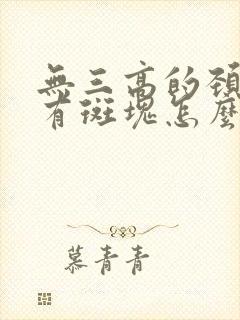 無三高的頸
有斑塊怎麼
慕青青